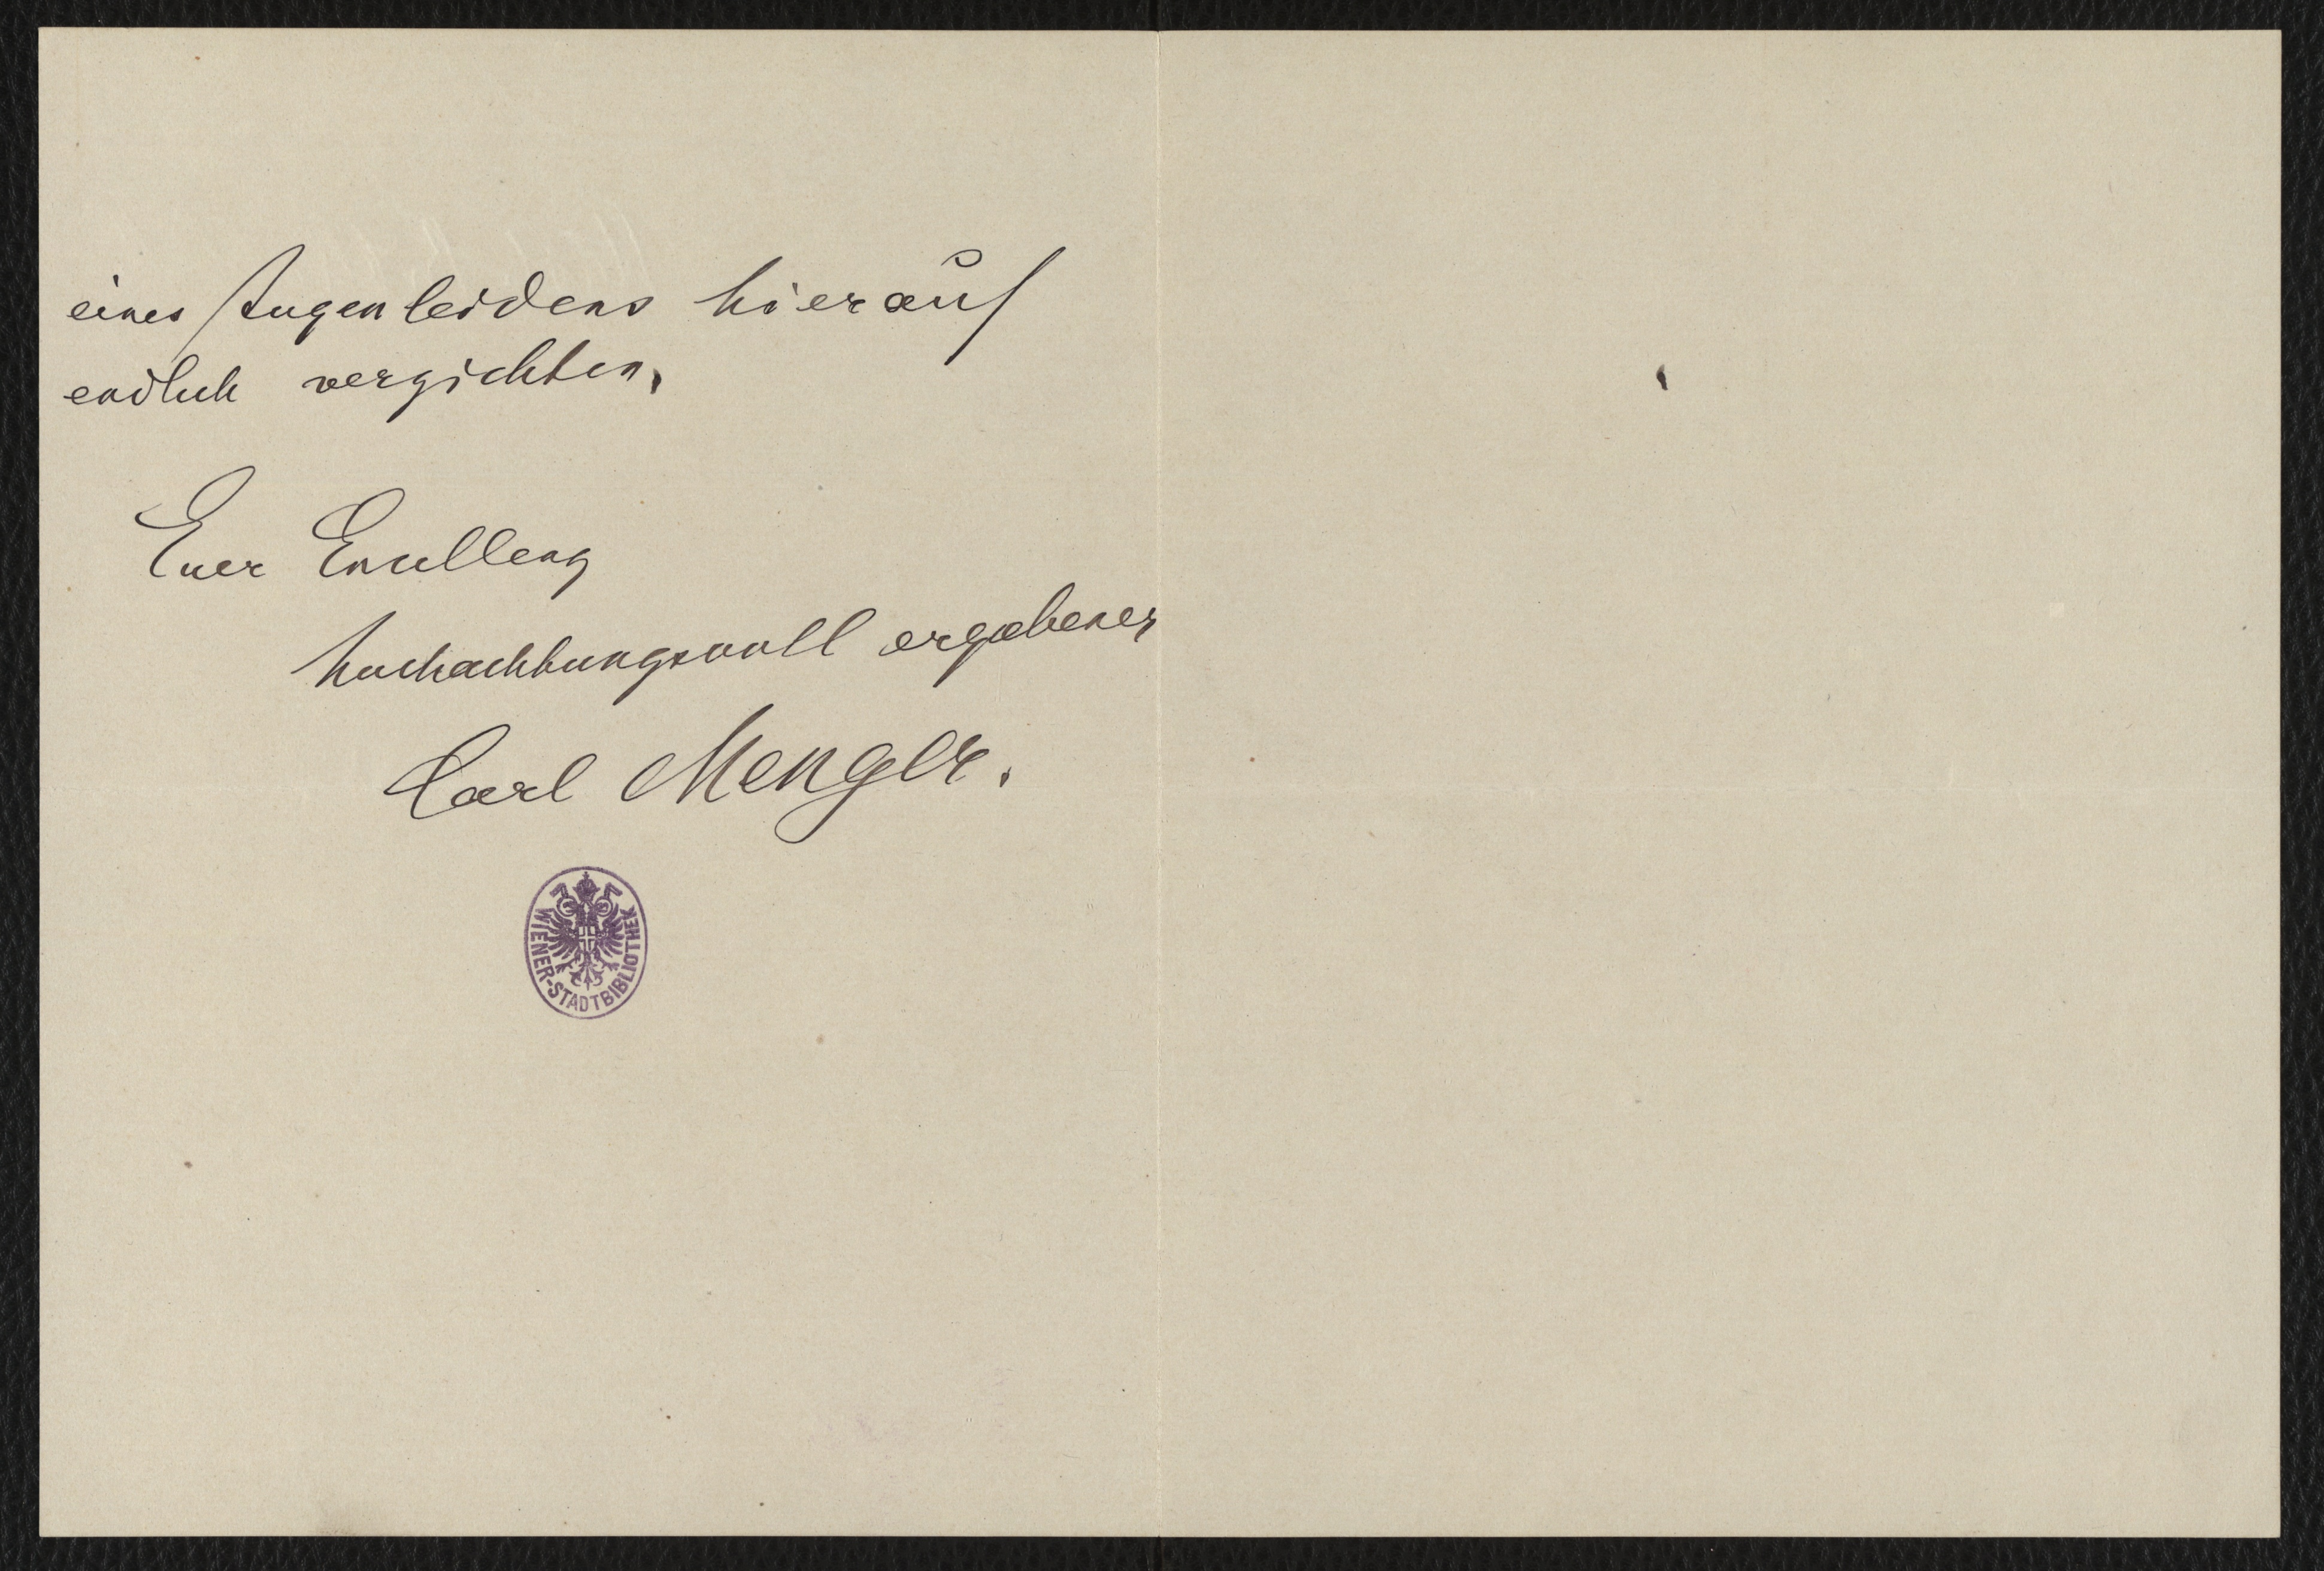 eines Augenleidens hierauf
endlich verzichten.
Euer Excellenz
hochachtungsvoll ergebener
Carl Menger.
WIENER-STADTBIBLIOTHEK